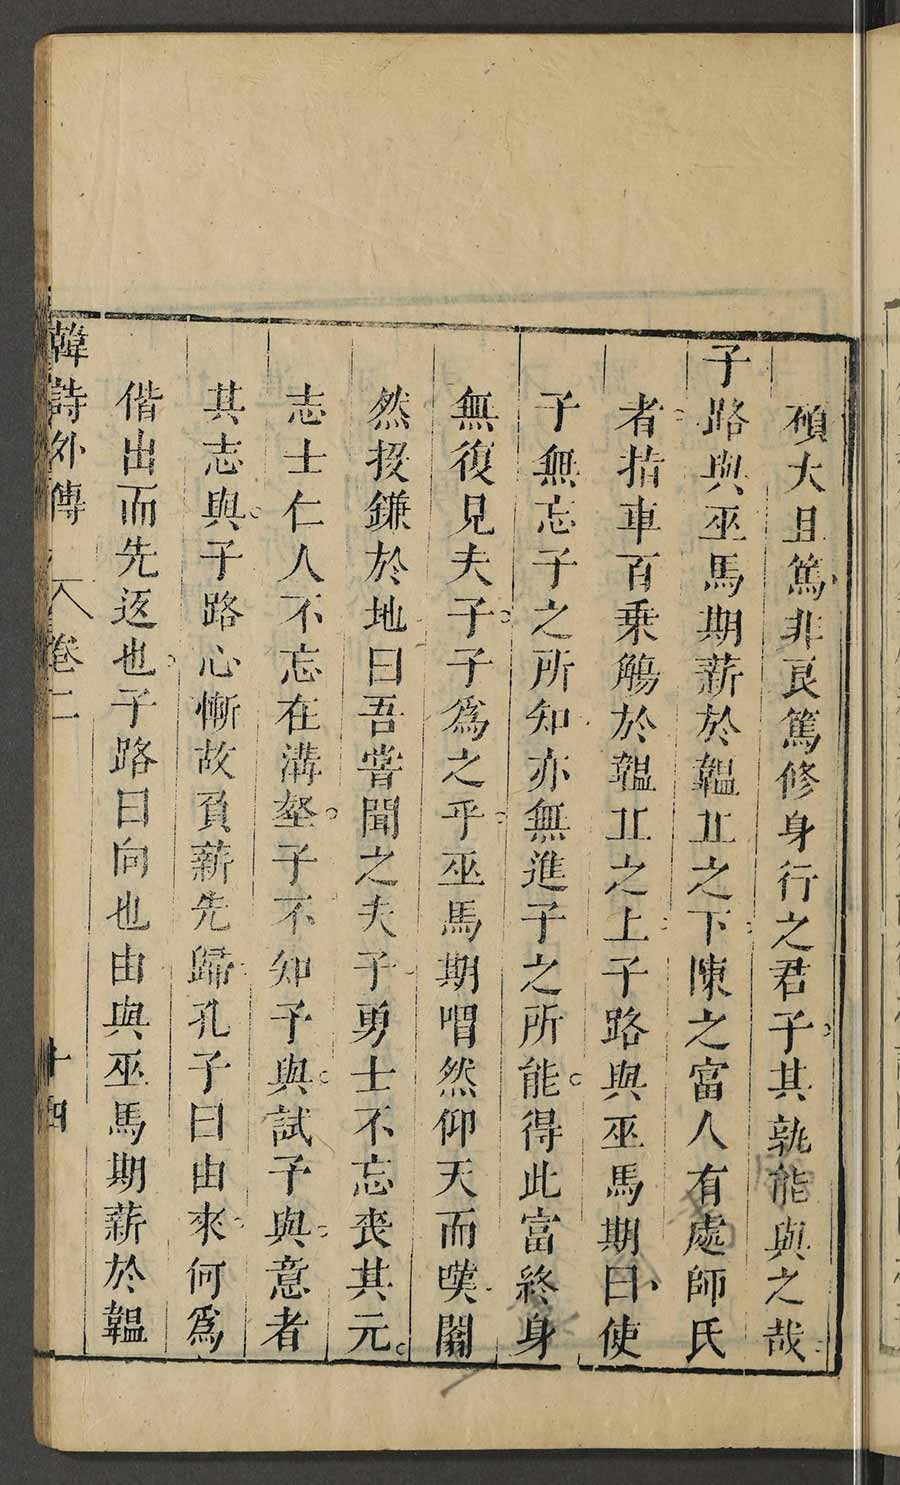 碩大且篤非良篤修身行之君子其孰能與之哉
子路與巫馬期薪於韞丘之下陳之富人有處師氏
者指車百乗觴於韞丘之上子路與巫馬期曰使
子無忘子之所知亦無進子之所能得此富終身
無復見夫子子為之乎巫馬期喟然仰天而嘆闟
然投鎌於地曰吾嘗聞之夫子勇士不忘喪其元
志士仁人不忘在溝壑子不知予與試予與意者
其志與子路心慚故負薪先歸孔子曰由來何為
偕出而先返也子路曰向也由與巫馬期薪於韞
韓詩外傳 卷二 十四